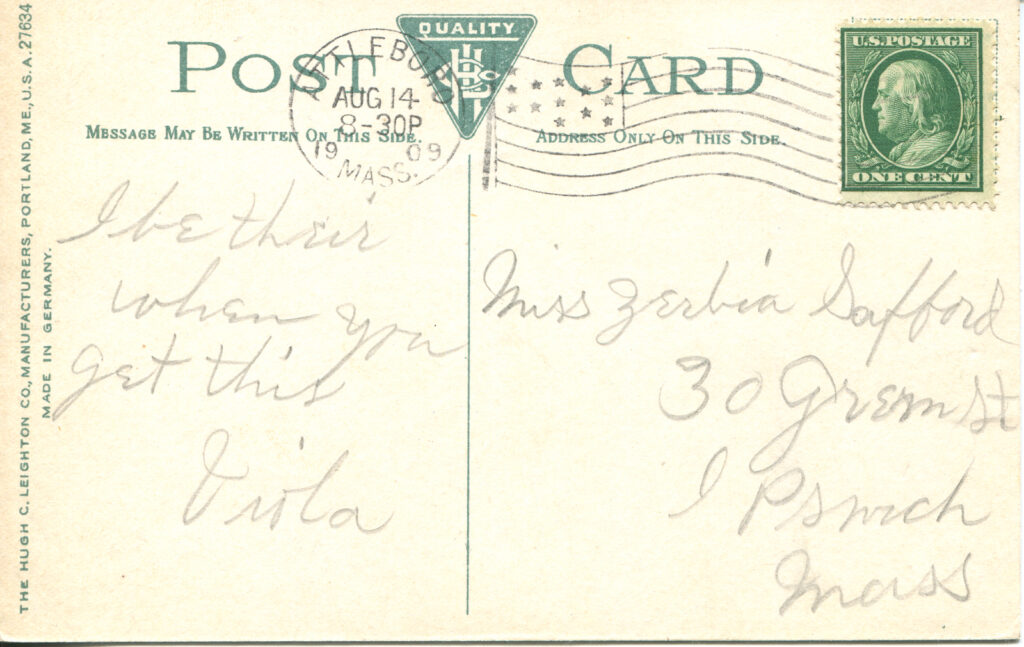 THE HUGH C. LEIGHTON CO., MANUFACTURERS, PORTLAND, ME., U.S.A. 27634
MADE IN GERMANY.
POST CARD
QUALITY
ATTLEBORO
AUG 14
8-30P
1909
MASS.
U.S. POSTAGE
ONE CENT
MESSAGE MAY BE WRITTEN ON THIS SIDE.
ADDRESS ONLY ON THIS SIDE.
I be their
when you
get this
Viola
Miss Zerbia Safford
30 Green St
Ipswich
Mass